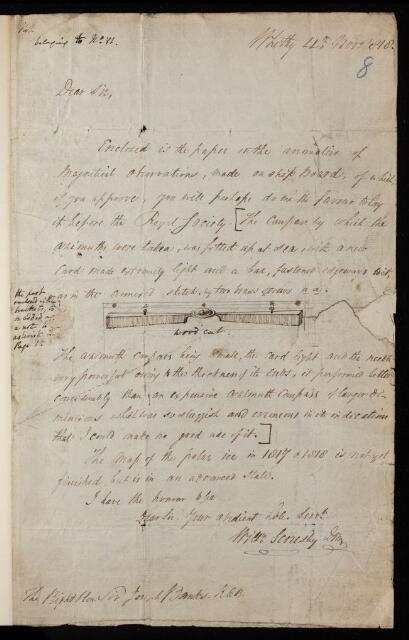 belonging to No. VI.
Whitby 4th Novr 1818.
8
Dear Sir,
Enclosed is the paper on the anomalies of
Magnetical observations, made on ship board, of which
if you approve, you will perhaps do me the favour to lay
it before the Royal Society. [The Compass by which the
azimuths were taken, was fitted up at sea, with a new
card made extremely light and a bar, fastened edgeways to it
as in the annexed sketch, by two brass screws a a.
the part
enclosed within
brackets, to
be added as
a note to
asterisk
Page 1
a a
wood cut.
The azimuth compass being small, the card light and the needle
very powerful owing to the thickness of its ends, it performed better
considerably than an expensive azimuth Compass of larger di-
mensions which was so sluggish and erroneous in its indications
that I could make no good use of it.]
The Map of the polar ice in 1817 & 1818 is not yet
finished but is in an advanced state.
I have the honour to be
Dear Sir Your obedient Hble. Servt.
Wm. Scoresby Junr
The Right Hon Sir Joseph Banks K.C.B.